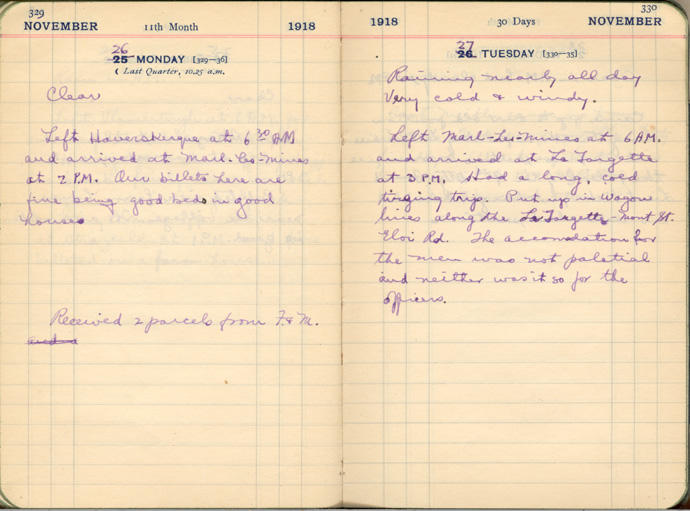 329
NOVEMBER 11th Month 1918
26
25 MONDAY [329—36]
( Last Quarter, 10.25 a.m.
Clear
Left Haverskerque at 6 30 AM
and arrived at Marl-les-Mines
at 2 P.M. Our billets here are
fine being good beds in good
houses
Received 2 parcels from F. & M.
and a
330
1918 30 Days NOVEMBER
27
26 TUESDAY [330—35]
Raining nearly all day
Very cold & windy.
Left Marl-Les-Mines at 6 AM.
and arrived at La Targette
at 3 P.M. Had a long, cold
tirging trip. Put up in Wagon
lines along the La Targette-Mont St.
Eloi Rd. The accomdation for
the men was not palatial
and neither was it so for the
officers.